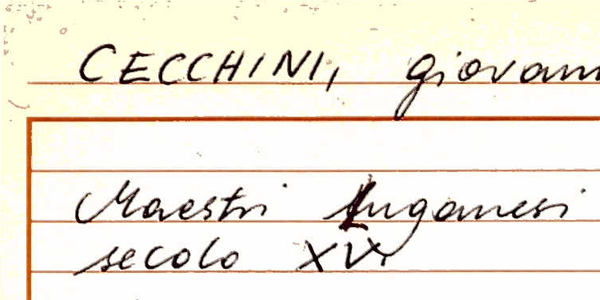 CECCHINI, giovann
Maestri Luganesi
secolo XVI